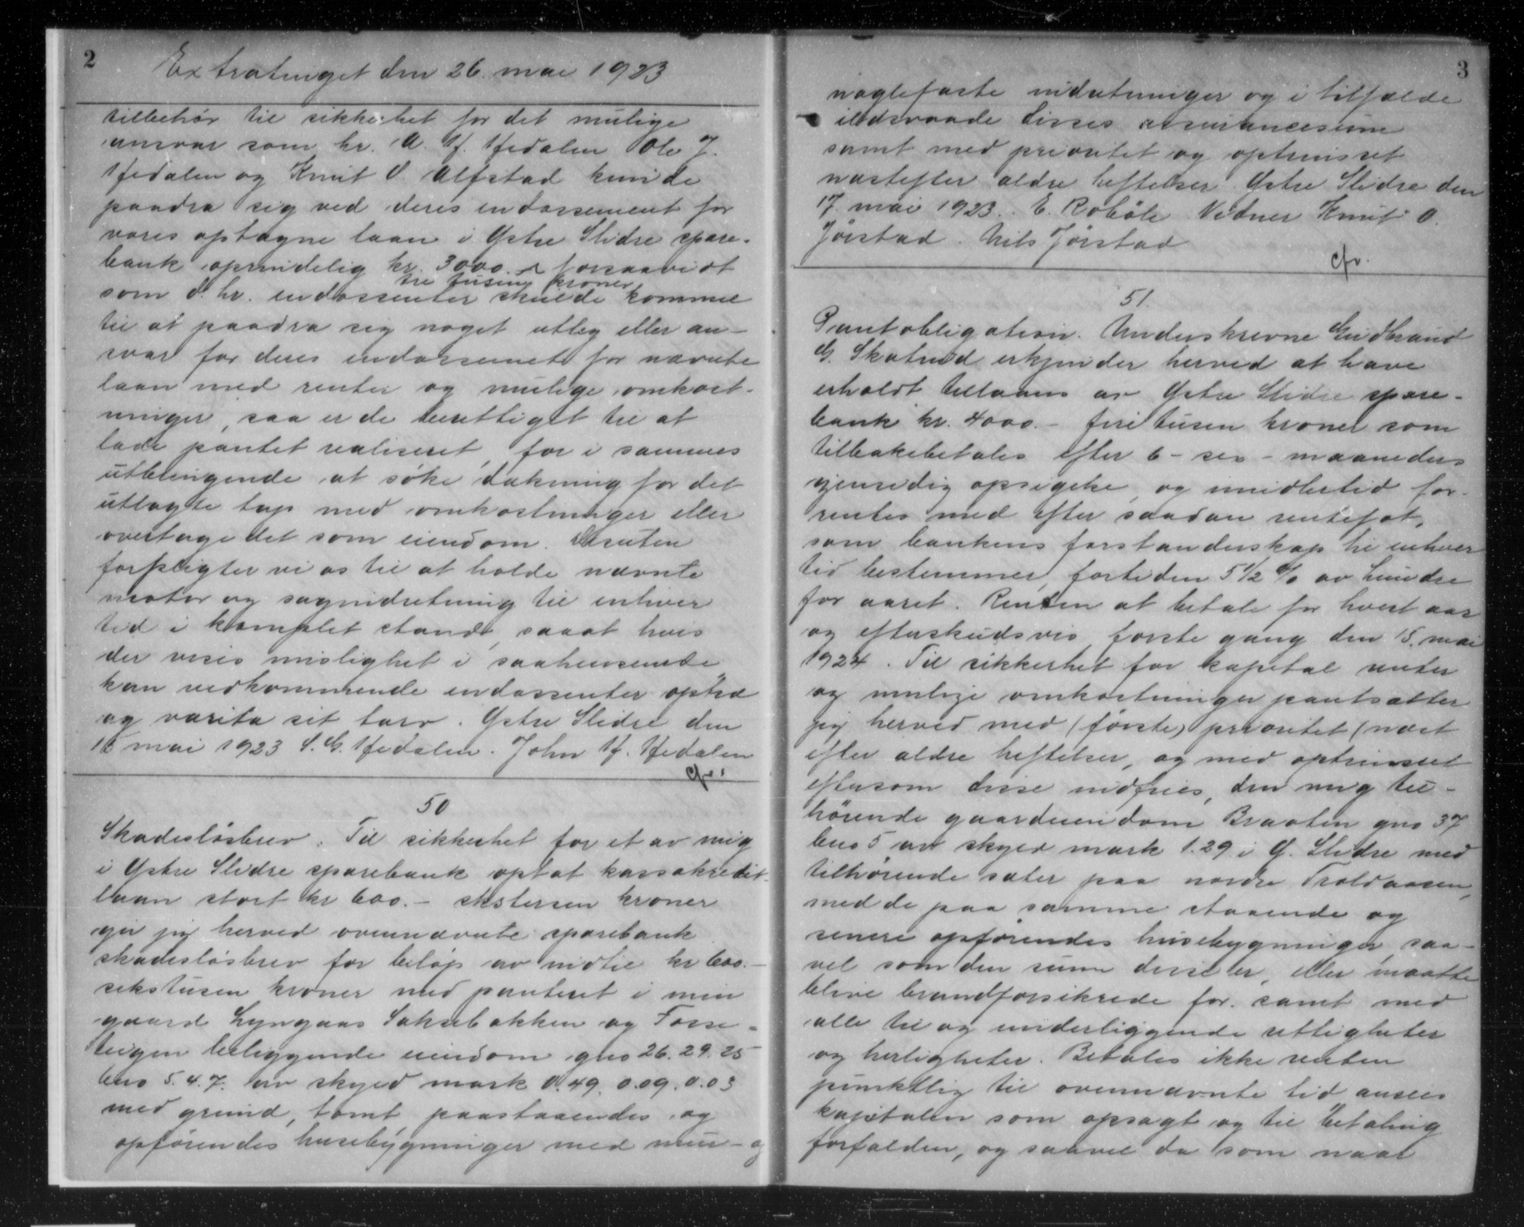 2
Extratinget den 26. mai 1923
tilbehör til sikkerhet for det mulige
ansvar som hr. A. H. Hedalen Ole J.
Hedalen og Knut O Alfstad kunde
paadra sig ved deres endossement for
vores optagne laan i Östre Slidre spare-
bank oprindelig kr. 3000.- forsaavidt
tre tusing kroner
som d. hr. endossenter skulde komme
til at paadra sig noget utlæg eller an-
svar for deres endossement for nævnte
laan med renter og mulige omkost-
ninger, saa er de berettiget til at
lade pantet realiseret, for i sammes
utbringende at söke dækning for det
utlagte tap med omkostninger eller
overtage det som eiendom. Desuten
forpligter vi os til at holde nævnte
motor og sagindretning til enhver
tid i komplet stand, saaat hvis
der vises mislighet i saahenseende
kan vedkommende endossenter optræ
og varita sit tarv. Östre Slidre den
16 mai 1923 S. G. Hedalen. John H. Hedalen
cfr.
50
Skadeslösbrev. Til sikkerhet for et av mig
i Östre Slidre sparebank optat kassakredit-
laan stort kr 600.- sekstusen kroner
gir jeg herved ovennævnte sparebank
skadeslösbrev for belöp av indtil kr 600.-
sekstusen kroner med panteret i min
gaard Lyngaas Saksebakken og Fosse-
teigen beliggende eiendom gno 26. 29. 25
bno 5. 4. 7. av skyld mark 0.49. 0.09. 0.03
med grund, tomt paastaaendes og
opförendes husebygninger med mur- og
3
naglefaste indretninger og i tilfælde
ildsvaade disses assurancesum
samt med prioritet og optrinsret
næstefter ældre heftelser. Östre Slidre den
17 mai 1923. E. Robôle Vidner Knut O.
Jörstad. Nils Jörstad
cfr.
51.
Pantobligation. Underskrevne Gudbrand
G. Skatrud erkjender herved at have
erholdt tillaans av Östre Slidre spare-
bank kr. 4000.- fire tusen kroner som
tilbakebetales efter 6 - sex - maaneders
gjensidig opsigelse, og imidlertid for-
rentes med efter saadan rentefot,
som bankens forstanderskap til enhver
tid bestemmer, fortiden 5 1/2 % av hundre
for aaret. Renten at betale for hvert aar
og efterskudsvis, förste gang den 15. mai
1924. Til sikkerhet for kapital renter
og mulige omkostninger pantsætter
jeg herved med (förste) prioritet (næst
efter ældre heftelser, og med optrinsret
eftersom disse indfries, den mig til-
hörende gaardeiendom Braaten gno 37
bno 5 av skyld mark 1.29 i Ö. Slidre med
tilhörende sæter paa nordre Troldaasen,
med de paa samme staaende og
senere opförendes husebygninger, saa-
vel som den sum disse er, eller maatte
blive brandforsikrede for. samt med
alle til og underliggende rettigheter
og herligheter. Betales ikke renten
punktlig til ovennævnte tid ansees
kapitalen som opsagt og til betaling
forfalden, og saavel da som naar